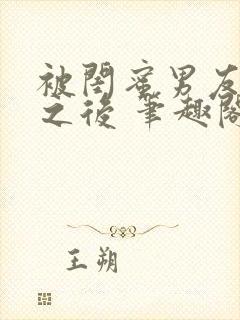 被閨蜜男友
之後 筆趣閣
王朔